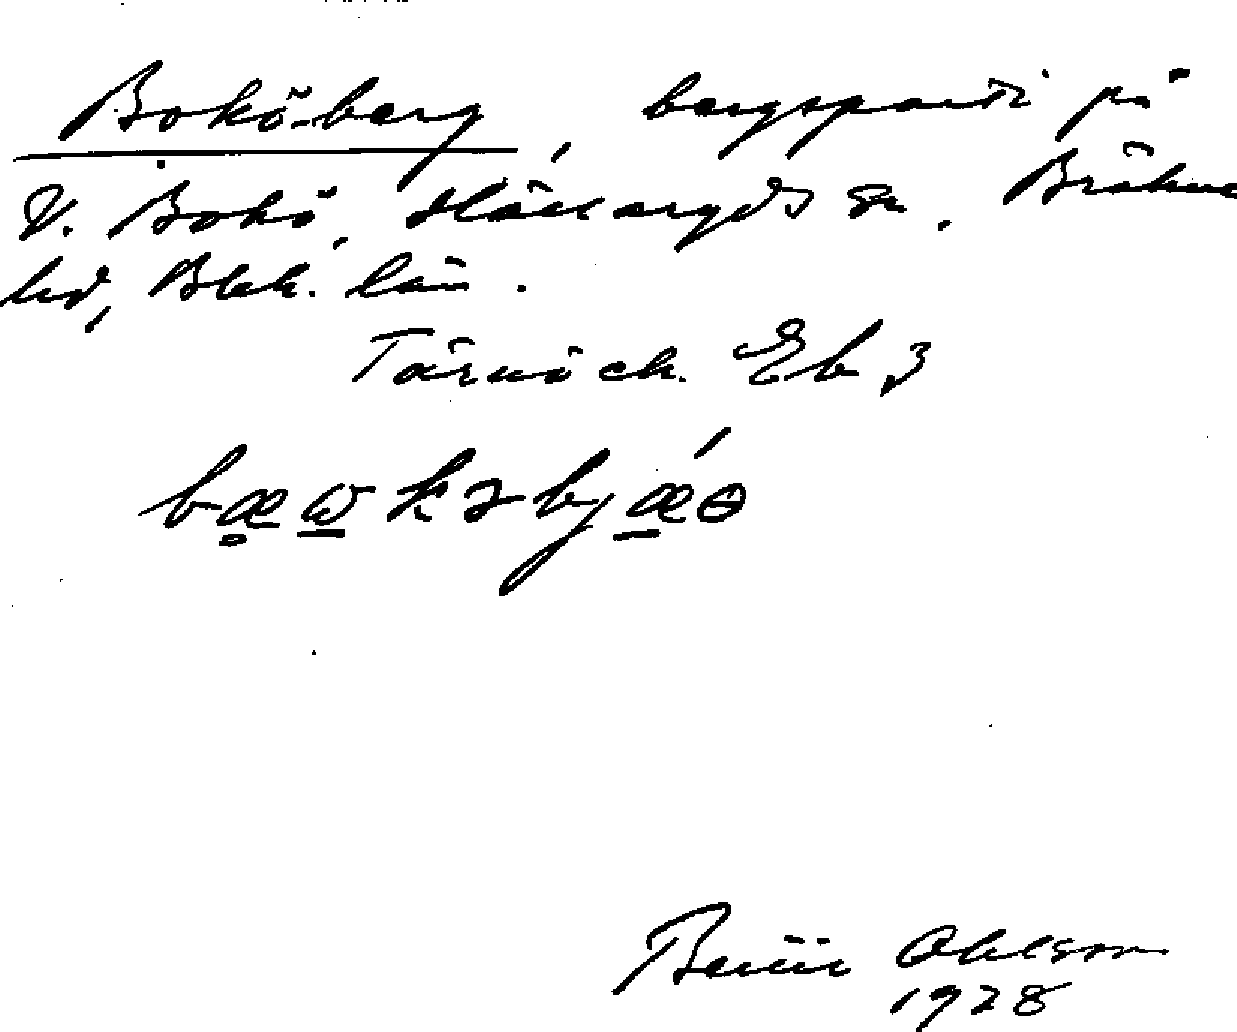 Bokö-berg, bergsparti på
V. Bokö, Hällaryds sn. Bräkne
hd, Blek. län.
Tärnö ek. Eb 3
Ohlsson
1928